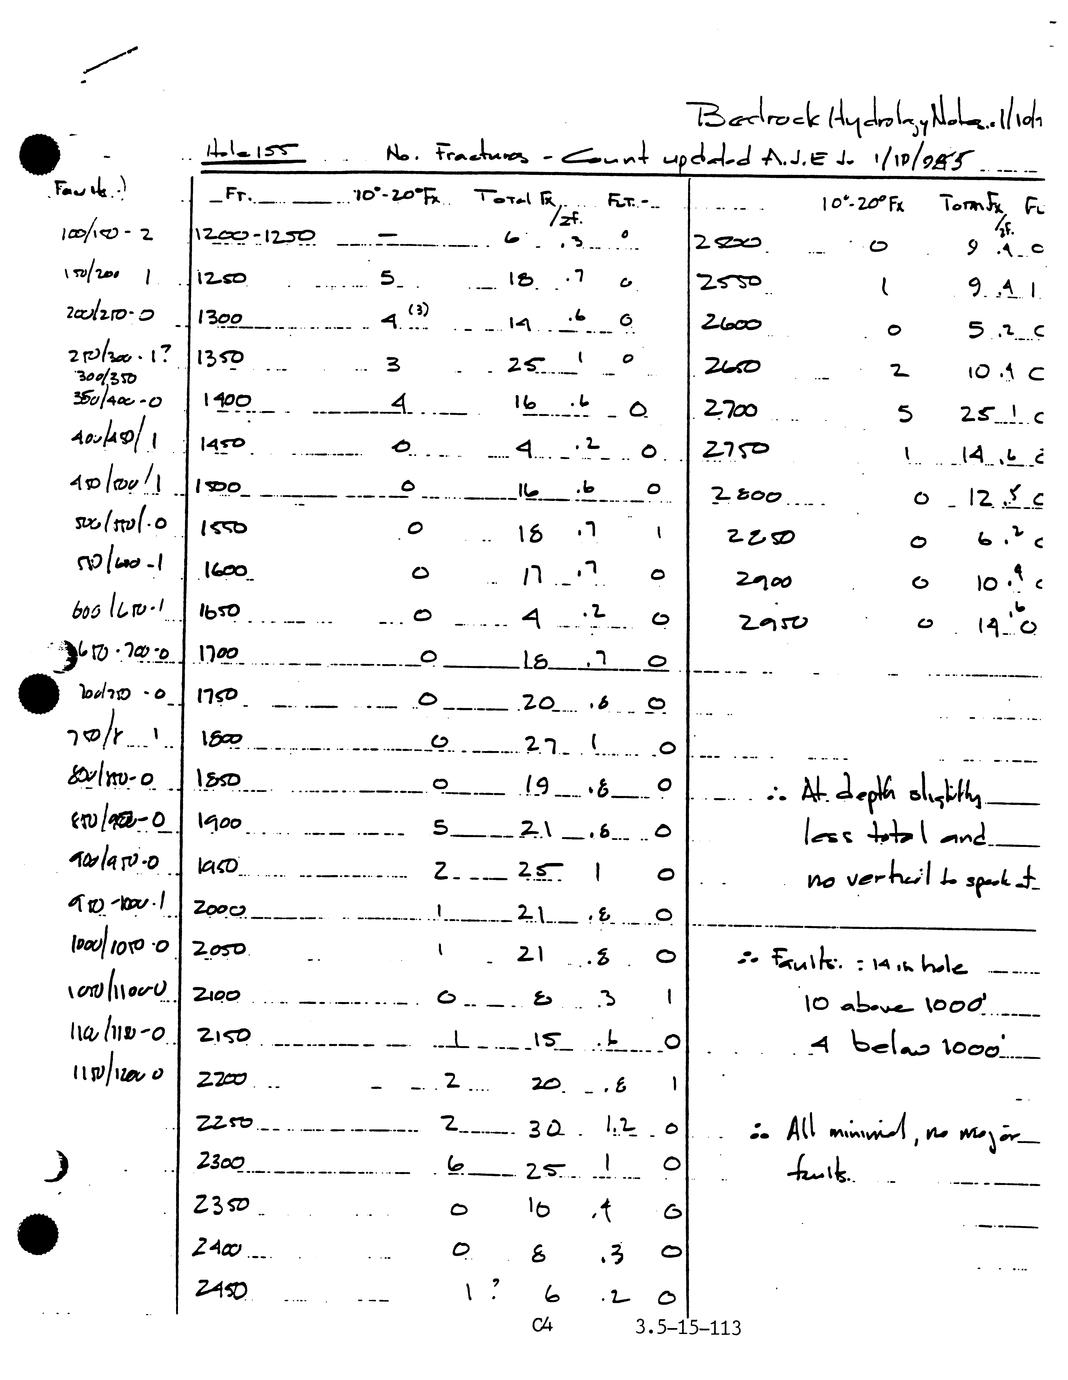 Bedrock Hydrology Notes. 1/10/
Hole 155 No. Fractures - Count updated A.J.E Jr. 1/10/
Faults
FT. 10°-20° Fx Total Fx /zf. FLT.-
10°-20° Fx Total Fx /zf. FL
100/150 - 2
150/200 1
200/250-0
250/300 - 1?
300/350
350/400-0
400/450/1
450/500/1
500/550/-0
550/600-1
600/650-1
650-700-0
700/750 -0
750/8 1
800/850-0
850/900-0
900/950-0
950-1000-1
1000/1050-0
1050/1100-0
1100/1150-0
1150/1200 0
1200-1250 — 6 .3 0
1250 5 18 .7 0
1300 4 (3) 14 .6 0
1350 3 25 1 0
1400 4 16 .6 0
1450 0 4 .2 0
1500 0 16 .6 0
1550 0 18 .7 1
1600 0 17 .7 0
1650 0 4 .2 0
1700 0 18 .7 0
1750 0 20 .8 0
1800 0 27 1 0
1850 0 19 .8 0
1900 5 21 .8 0
1950 2 25 1 0
2000 1 21 .8 0
2050 1 21 .8 0
2100 0 8 .3 1
2150 1 15 .6 0
2200 2 20 .8 1
2250 2 30 1.2 0
2300 6 25 1 0
2350 0 10 .4 0
2400 0 8 .3 0
2450 1 ? 6 .2 0
2500 0 9 .4 0
2550 1 9 .4 1
2600 0 5 .2 0
2650 2 10 .4 0
2700 5 25 1 0
2750 1 14 .6 0
2800 0 12 .5 0
2850 0 6 .2 0
2900 0 10 .4 0
2950 0 14 .6 0
∴ At depth slightly
less total and
no vertical to speak of
∴ Faults. : 14 in hole
10 above 1000'
4 below 1000'
∴ All minimal, no major
faults.
C4 3.5-15-113